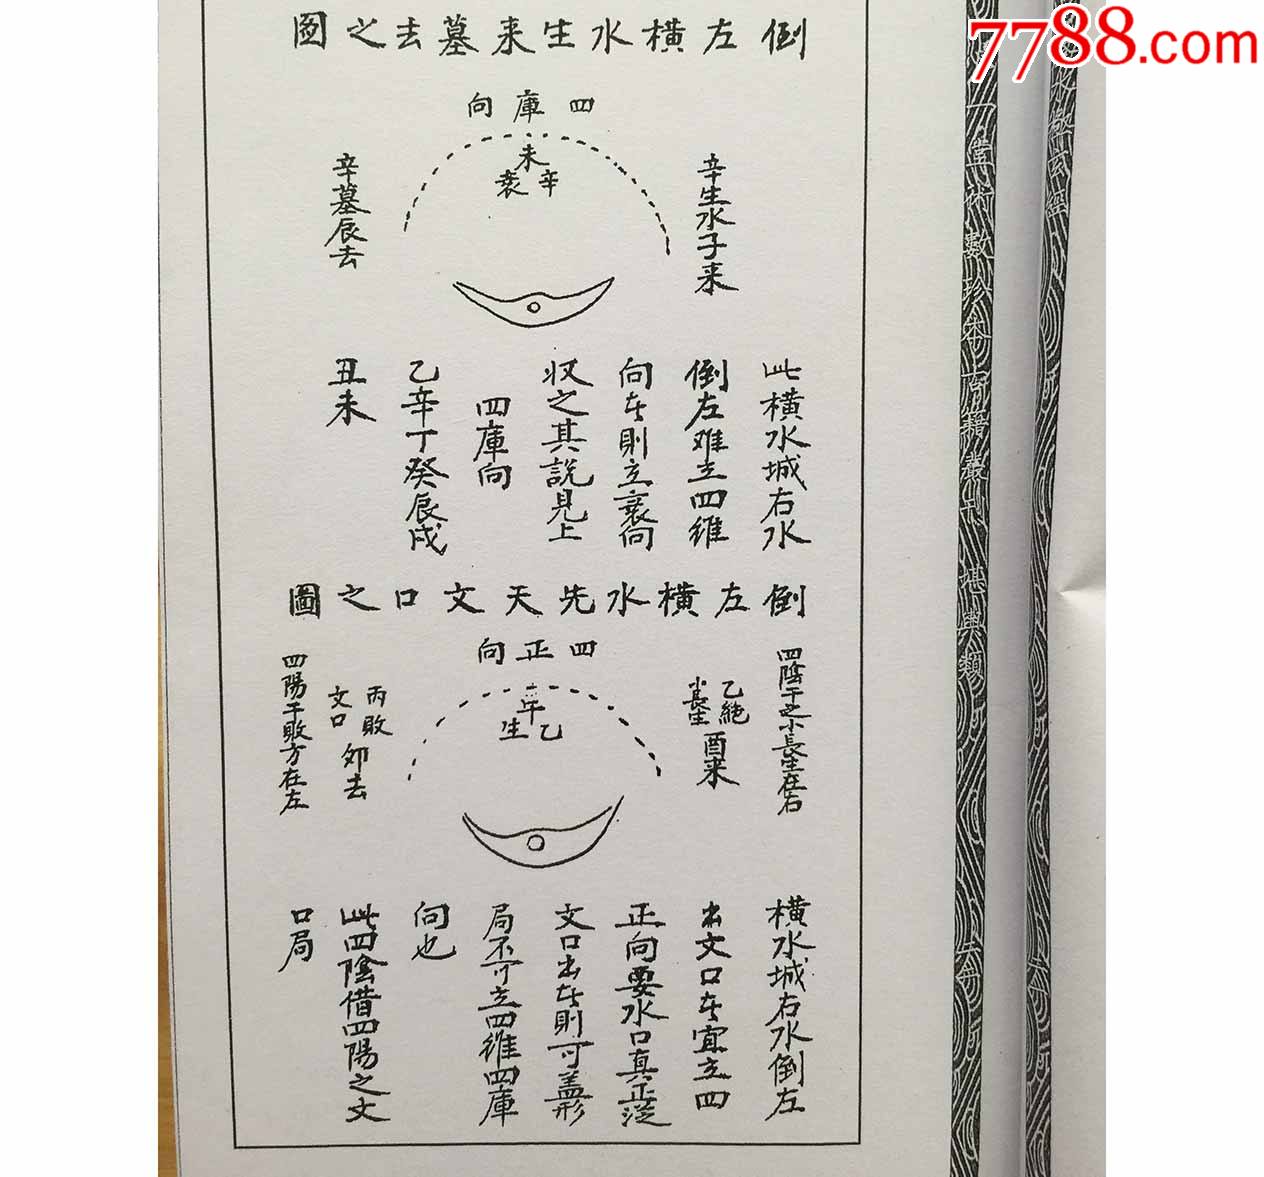 7788.com
倒左横水生来墓去之圖
四庫向
辛生水子来
未
辛衰
辛墓辰去
此横水城右水
倒左难立四维
向者則立衰向
收之其說見上
四庫向
乙辛丁癸辰戌
丑未
倒左横水先天文口之圖
四正向
四陰干之小長生在右
乙絶
小長生
酉来
午
乙生
丙敗
文口
卯去
四陽干敗方在左
横水城右水倒左
出文口者宜立四
正向要水口真正從
文口出者則可盖形
局不可立四维四庫
向也
此四陰借四陽之文
口局
心一堂術數珍本古籍叢刊 堪輿類